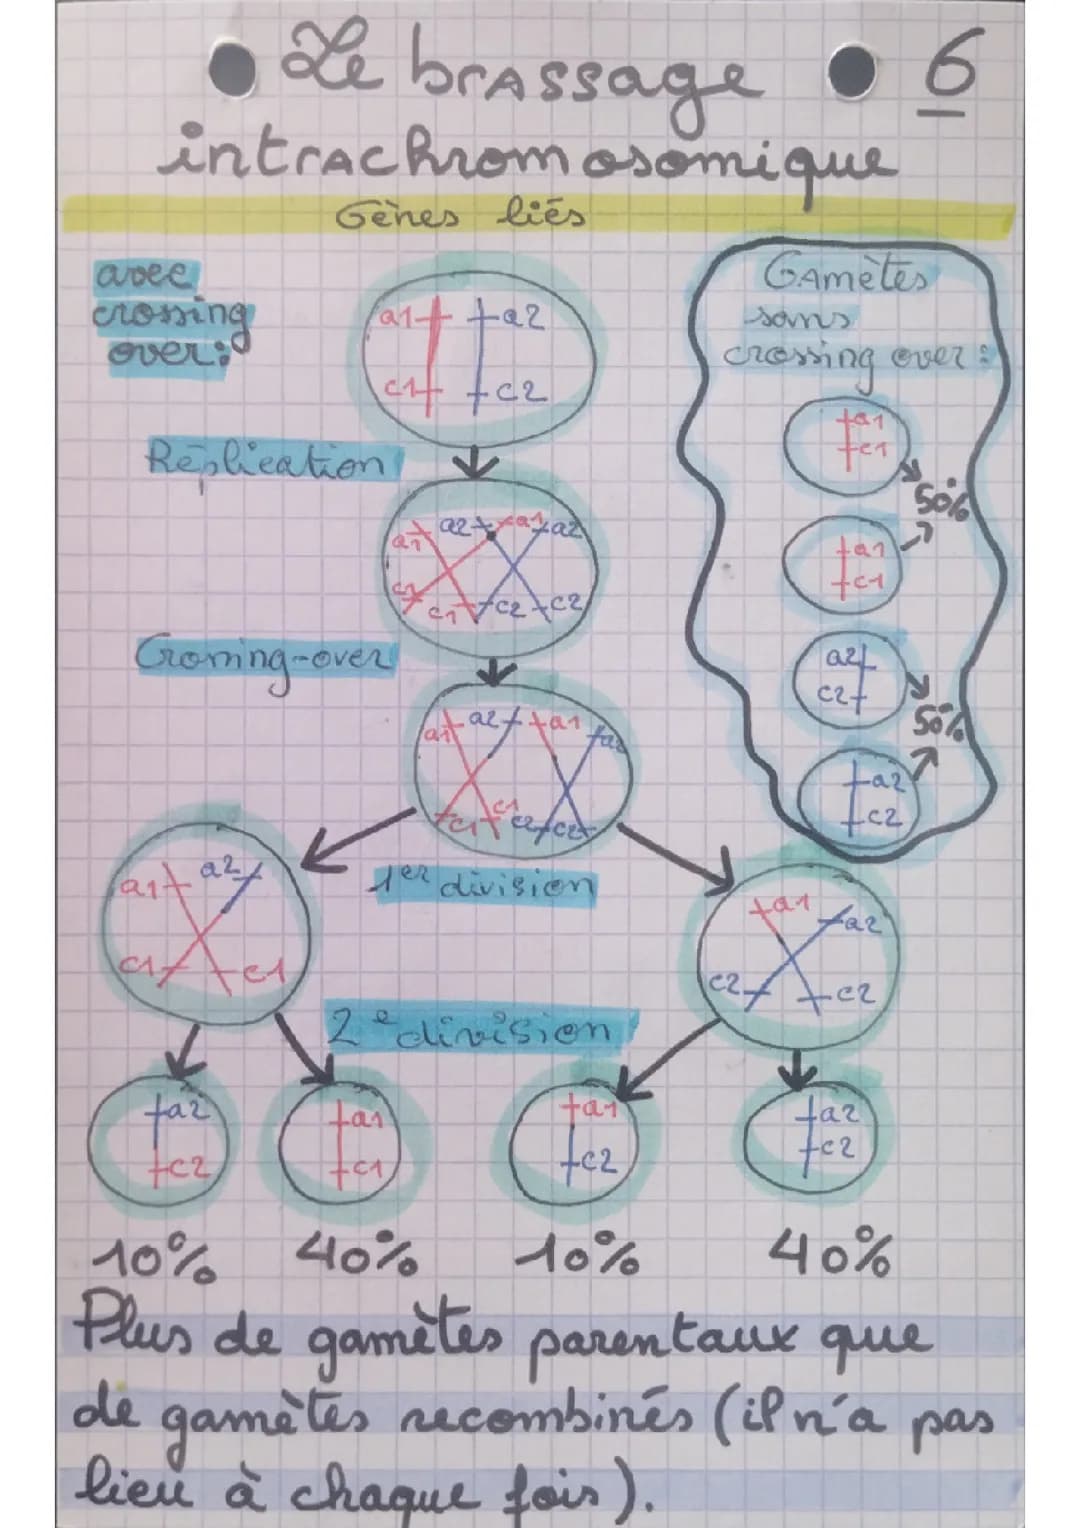 Le brassage 6
intrachromosomique
Gènes liés
avec
crossing
over:
a1 a2
c1 c2
Réplication
a1 a2 a1 a2
c1 c1 c2 c2
Crossing-over
a1 a2 a1 a2
c1 c1 c2 c2
1er division
a1 a2
c1 c1
a1 a2
c2 c2
2e division
a2
c2
a1
c1
a1
c2
a2
c2
10% 40% 10% 40%
Gamètes
sans
crossing over:
a1
c1
50%
a1
c1
a2
c2
50%
a2
c2
Plus de gamètes parentaux que
de gamètes recombinés (il n'a pas
lieu à chaque fois).